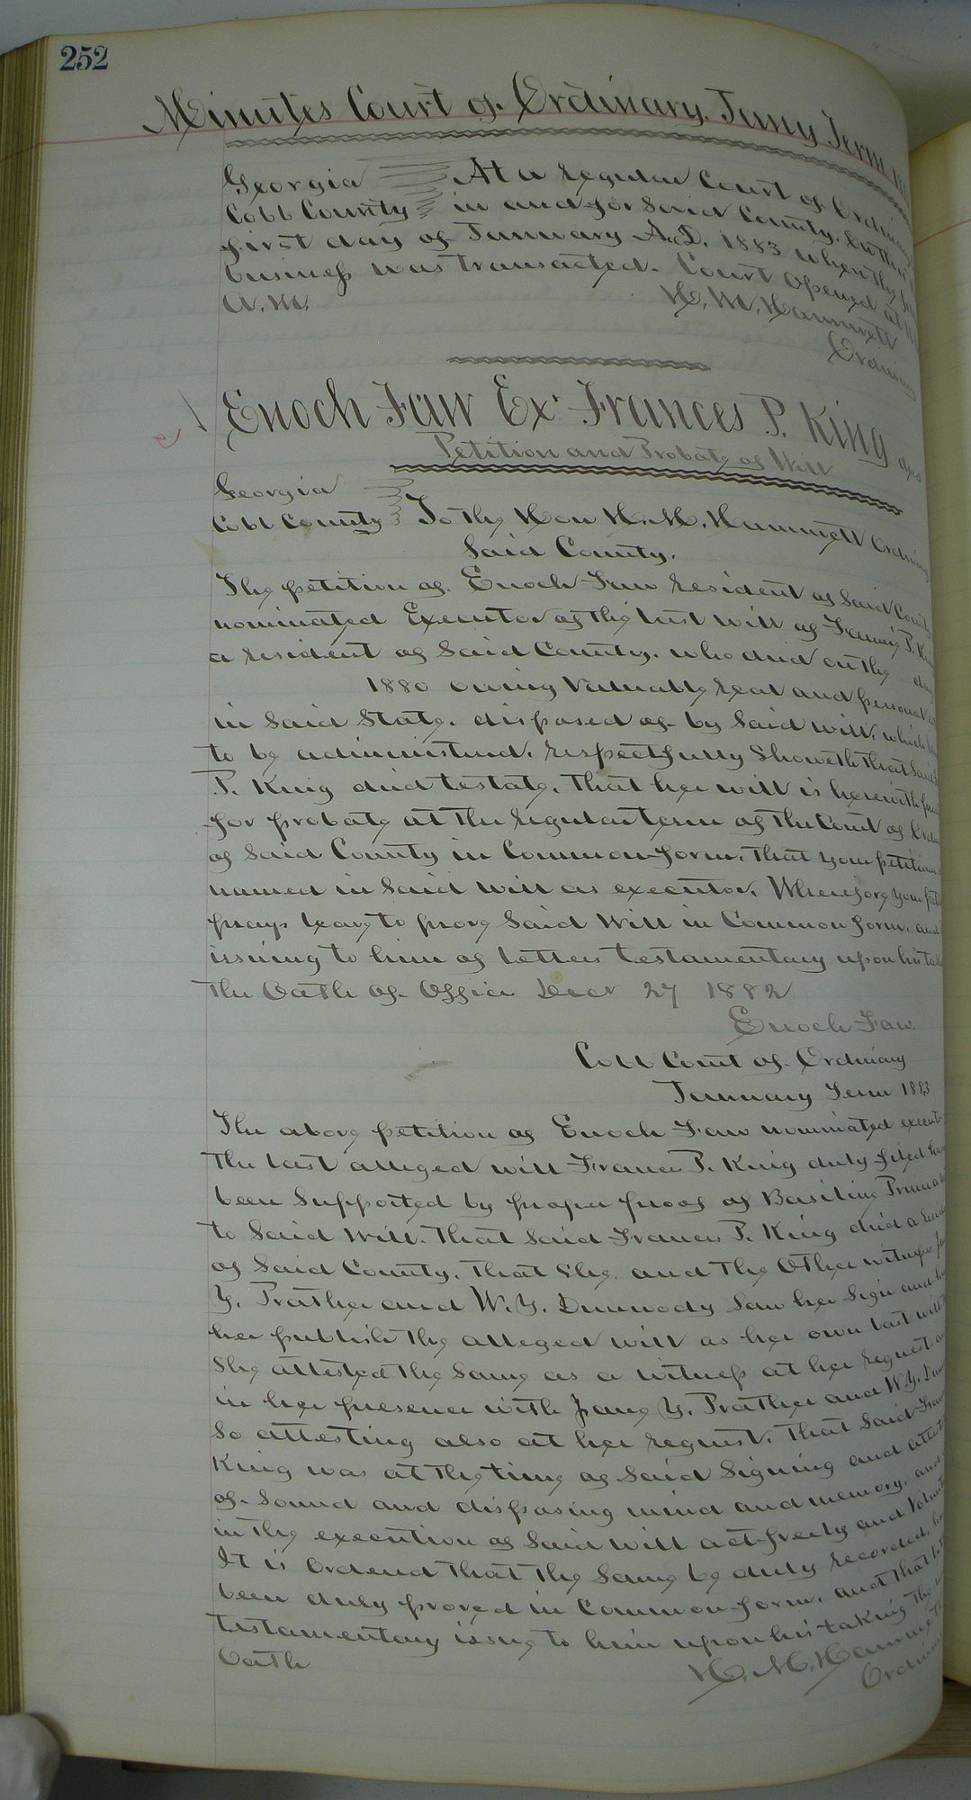 252
Minutes Court of Ordinary, January Term
Georgia At a regular Court of Ordinary
Cobb County in and for Said County, on the
first day of January A.D. 1883 when the
business was transacted. Court opened at
A.M. H. M. Hammett
Ordinary
Enoch Faw Exr Frances P. King
Petition and Probate of Will
Georgia
Cobb County To the Hon H. M. Hammett Ordinary
Said County.
The petition of Enoch Faw resident of Said County
nominated Executor of the last will of Fannie P. King
a resident of Said County. who died on the day
1880 owing Valuable real and personal
in Said State. disposed of by Said will, which
to be administered, respectfully Showeth that Said
P. King died testate, that her will is herewith
for probate at the regular term of the Court of
of Said County in Common form, that your petitioner
named in Said will as executor. Wherefore your
prays leave to prove Said Will in Common form, and
issuing to him of letters testamentary upon his
the Oath of Office Decr 27 1882
Enoch Faw
Cobb Court of Ordinary
January Term 1883
The above petition of Enoch Faw nominated
the last alleged will Frances P. King duly filed
been Supported by proper proof of Basiline
to Said Will. that Said Frances P. King died a
of Said County, that She and the Other witnesses
Y. Prather and W. Y. Dunwody Saw her Sign and
her publish the alleged will as her own last will
She attested the Same as a witness at her request
in her presence with Jane Y. Prather and W. Y.
So attesting also at her request. that Said
King was at the time of Said Signing and
of Sound and disposing mind and memory, and
in the execution of Said will act freely and
It is Ordered that the Same be duly recorded,
been duly proved in Common form, and that
testamentary issue to him upon his taking the
Oath H. M. Hammett
Ordinary